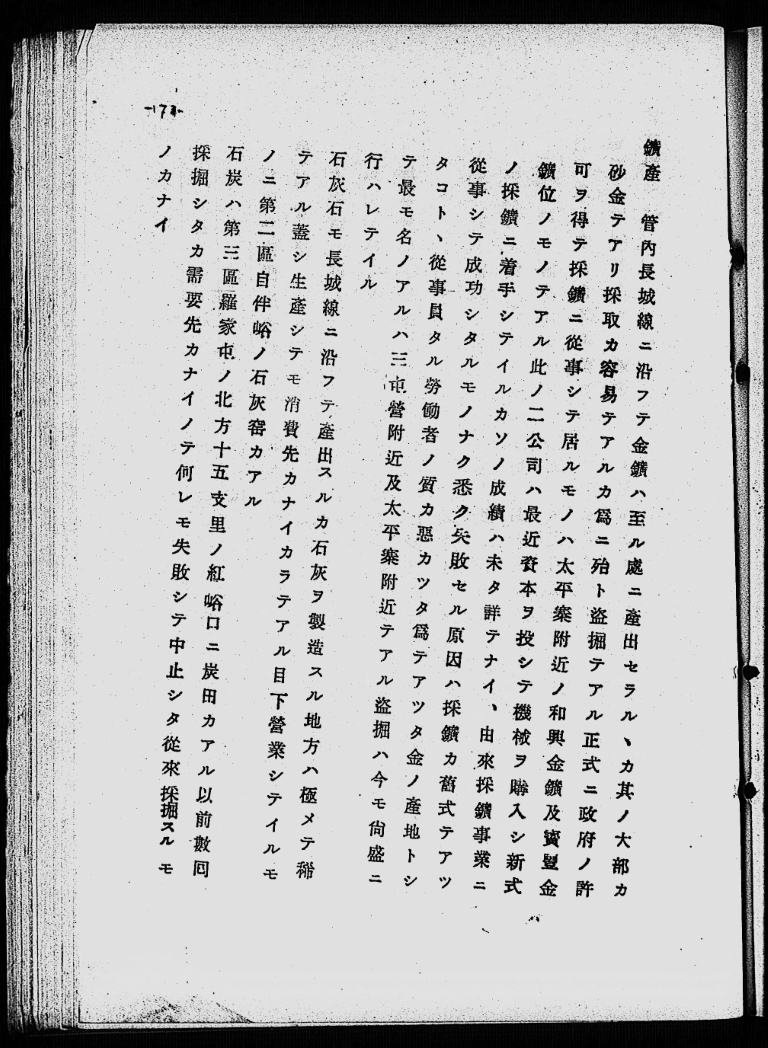 鑛產　管內長城線ニ沿フテ金鑛ハ至ル處ニ產出セラルヽカ其ノ大部カ
砂金テアリ採取カ容易テアルカ爲ニ殆ト盜掘テアル正式ニ政府ノ許
可ヲ得テ採鑛ニ從事シテ居ルモノハ太平寨附近ノ和興金鑛及寶豐金
鑛位ノモノテアル此ノ二公司ハ最近資本ヲ投シテ機械ヲ購入シ新式
ノ採鑛ニ着手シテイルカソノ成績ハ未タ詳テナイ、由來採鑛事業ニ
從事シテ成功シタルモノナク悉ク失敗セル原因ハ採鑛カ舊式テアツ
タコトヽ從事員タル勞働者ノ質カ惡カツタ爲テアツタ金ノ產地トシ
テ最モ名ノアルハ三屯營附近及太平寨附近テアル盜掘ハ今モ尙盛ニ
行ハレテイル
石灰石モ長城線ニ沿フテ產出スルカ石灰ヲ製造スル地方ハ極メテ稀
テアル蓋シ生產シテモ消費先カナイカラテアル目下營業シテイルモ
ノニ第二區自伴峪ノ石灰窑カアル
石炭ハ第三區羅家屯ノ北方十五支里ノ紅峪口ニ炭田カアル以前數囘
採掘シタカ需要先カナイノテ何レモ失敗シテ中止シタ從來採掘スルモ
ノカナイ